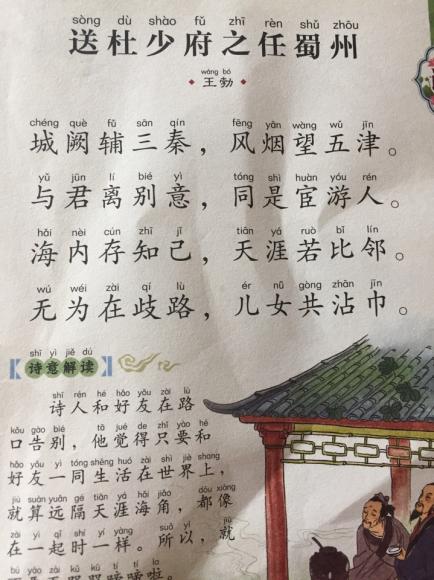 sòng dù shào fǔ zhī rèn shǔ zhōu
送杜少府之任蜀州
wáng bó
王勃
chéng què fǔ sān qín fēng yān wàng wǔ jīn
城阙辅三秦，风烟望五津。
yǔ jūn lí bié yì tóng shì huàn yóu rén
与君离别意，同是宦游人。
hǎi nèi cún zhī jǐ tiān yá ruò bǐ lín
海内存知己，天涯若比邻。
wú wéi zài qí lù ér nǚ gòng zhān jīn
无为在歧路，儿女共沾巾。
shī yì jiě dú
【诗意解读】
shī rén hé hǎo yǒu zài lù
诗人和好友在路
kǒu gào bié tā jué de zhǐ yào hé
口告别，他觉得只要和
hǎo yǒu yì tóng shēng huó zài shì jiè shàng
好友一同生活在世界上，
jiù suàn yuǎn gé tiān yá hǎi jiǎo dōu xiàng
就算远隔天涯海角，都像
zài yì qǐ shí yí yàng suǒ yǐ jiù
在一起时一样。所以，就
bú yào kū kū tí tí la